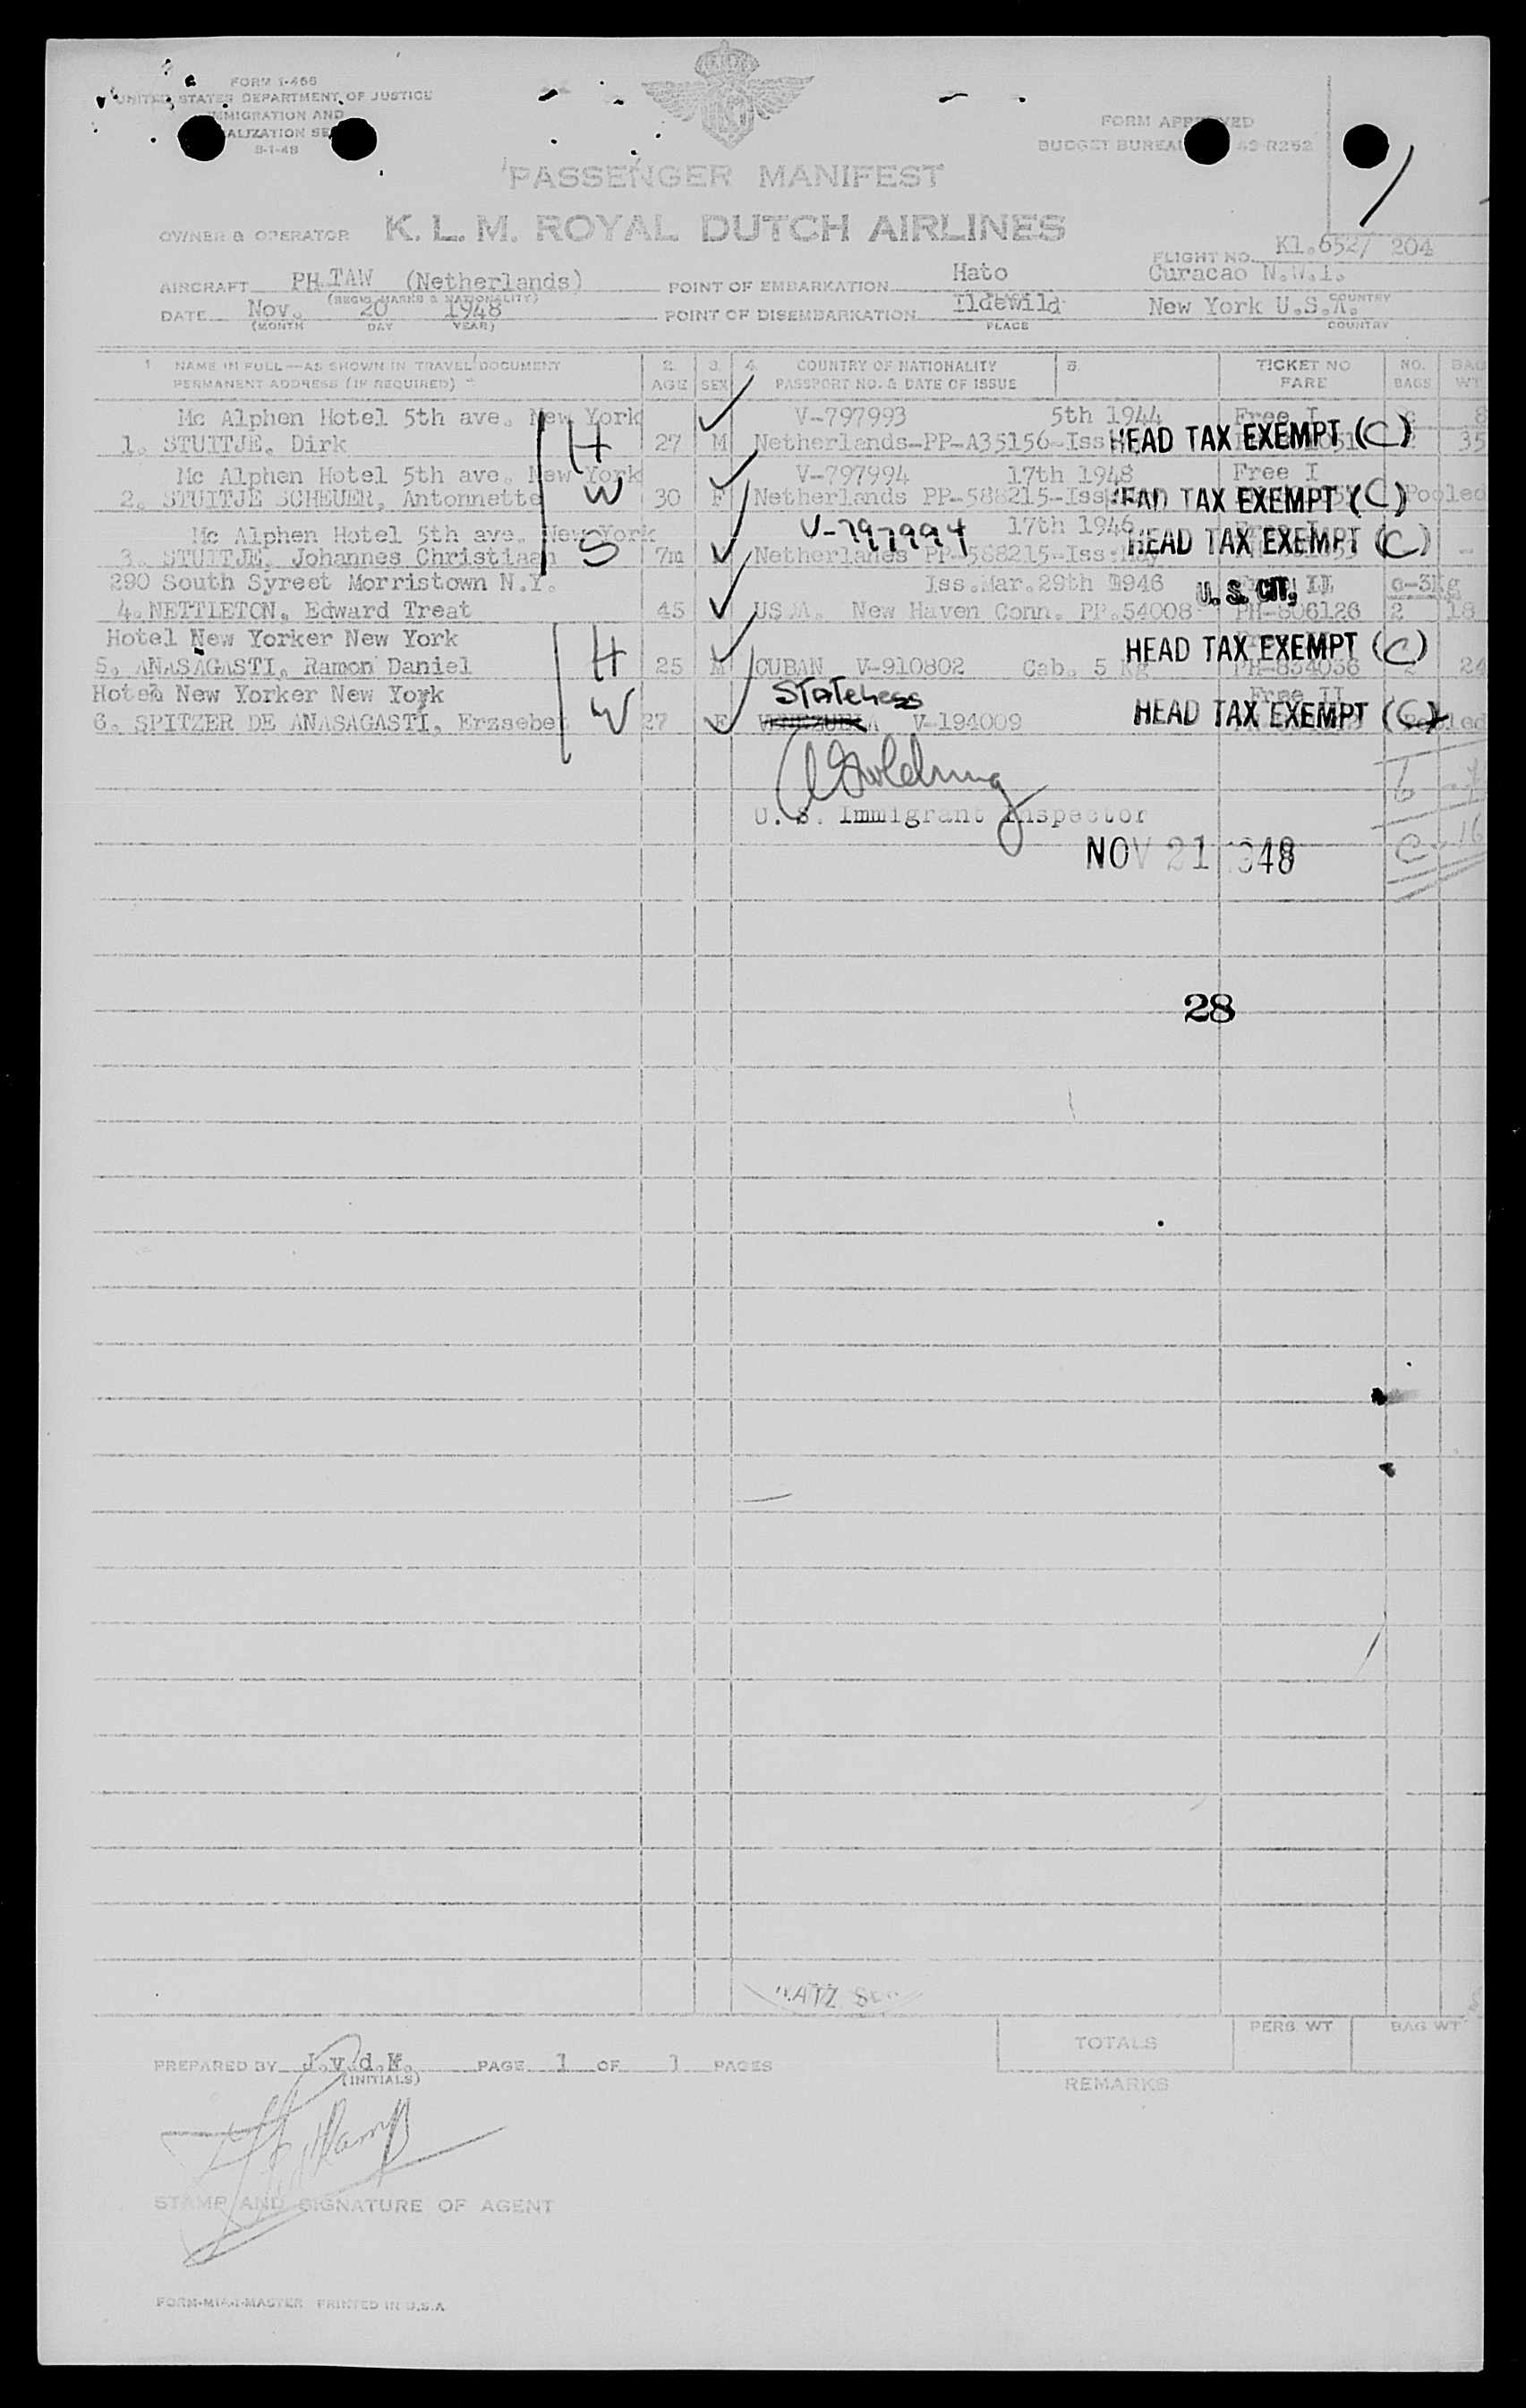 FORM I-466
UNITED STATES DEPARTMENT OF JUSTICE
IMMIGRATION AND
ALIZATION SE
FORM APPROVED
BUDGET BUREAU 43-R252
PASSENGER MANIFEST
OWNER & OPERATOR K. L. M. ROYAL DUTCH AIRLINES
FLIGHT NO. Kl.652/ 204
AIRCRAFT PH TAW (Netherlands) POINT OF EMBARKATION Hato Curacao N.W.I.
(REGIS. MARKS & NATIONALITY) COUNTRY
DATE Nov. 20 1948 POINT OF DISEMBARKATION Ildewild New York U.S.A.
(MONTH DAY YEAR) PLACE COUNTRY
1 NAME IN FULL—AS SHOWN IN TRAVEL DOCUMENT 2. 3. 4. COUNTRY OF NATIONALITY 5. TICKET NO NO. BAG
PERMANENT ADDRESS (IF REQUIRED) AGE SEX PASSPORT NO. & DATE OF ISSUE FARE BAGS WT
Mc Alphen Hotel 5th ave. New York V-797993 5th 1944 Free I 8
1. STUITJE, Dirk H 27 M Netherlands-PP-A35156-Iss HEAD TAX EXEMPT (C) 35
Mc Alphen Hotel 5th ave. New York V-797994 17th 1948 Free I
2. STUITJE SCHEUER, Antonnette W 30 F Netherlands PP-588215-Iss HEAD TAX EXEMPT (C) Pooled
Mc Alphen Hotel 5th ave. New York V-797994 17th 1946
3. STUITJE, Johannes Christiaan S 7m Netherlands PP-588215-Iss:May HEAD TAX EXEMPT (C) -
290 South Syreet Morristown N.Y. Iss.Mar.29th 1946 U. S. CIT, II c-3Kg
4. NETTLETON, Edward Treat 45 US.A. New Haven Conn. PP.54008 PH-806126 2 18
Hotel New Yorker New York
5. ANASAGASTI, Ramon Daniel H 25 M CUBAN V-910802 Cab. 5 Kg HEAD TAX EXEMPT (C) PH-834036 2 24
Hotel New Yorker New York Stateless Free II
6. SPITZER DE ANASAGASTI, Erzsebet W 27 F VENEZUELA V-194009 HEAD TAX EXEMPT (C) Pooled
U. S. Immigrant Inspector
NOV 21 1948
28
TOTALS PERS. WT BAG WT
PREPARED BY J.v.d.M. PAGE 1 OF 1 PAGES
(INITIALS)
REMARKS
STAMP AND SIGNATURE OF AGENT
PRINTED IN U.S.A